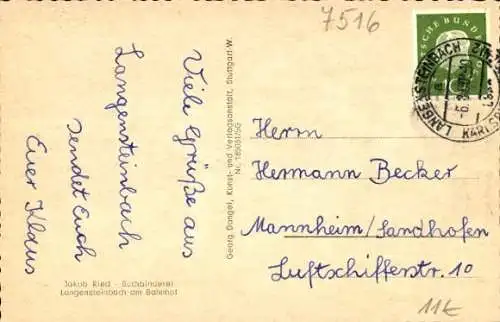 7516
Viele Grüße aus
Langensteinbach
sendet Euch
Euer Klaus
Jakob Ried - Buchbinderei
Langensteinbach am Bahnhof
Georg Dangel, Kunst- und Verlagsanstalt, Stuttgart-W.
DEUTSCHE BUND
LANGENSTEINBACH
Herrn
Hermann Becker
Mannheim/Sandhofen
Luftschifferstr. 10
11€